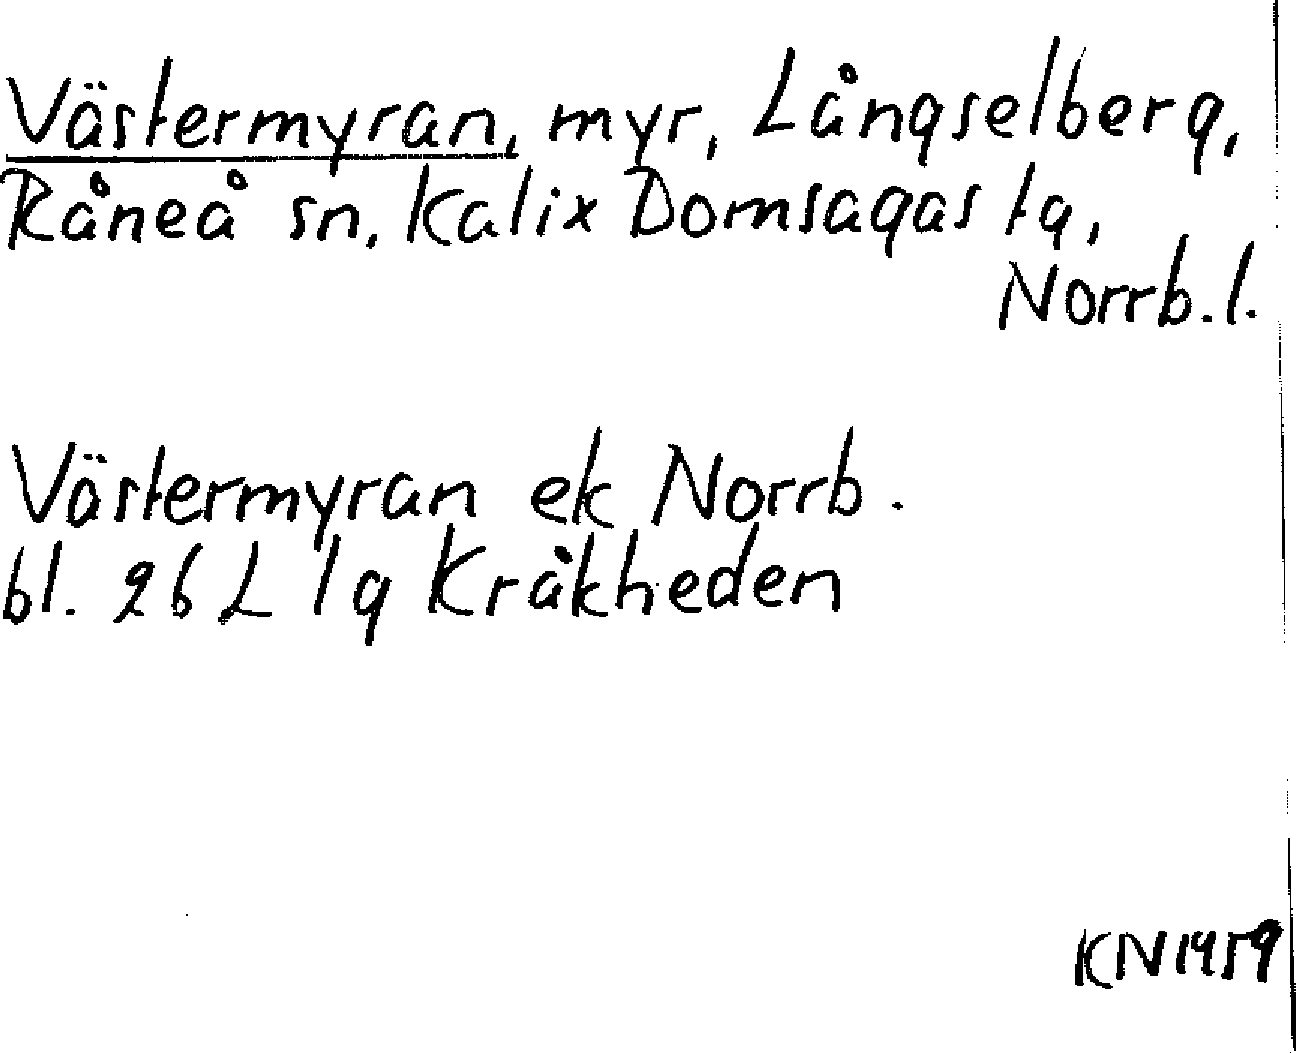 Västermyran, myr, Långselberg,
Råneå sn, Kalix Domsagas tg,
Norrb. l.
Västermyran ek Norrb.
bl. 26 L lg Kråkheden
KN 1959